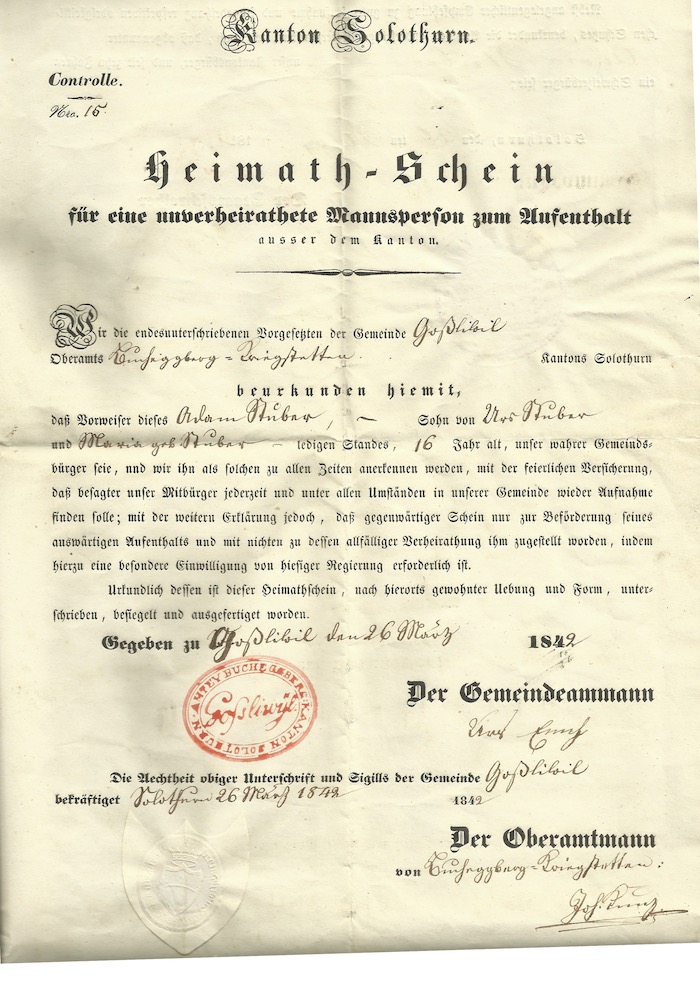 Kanton Solothurn.
Controlle.
Nro. 15.
Heimath-Schein
für eine unverheirathete Mannsperson zum Aufenthalt
ausser dem Kanton.
Wir die endesunterschriebenen Vorgesetzten der Gemeinde Goßliwil
Oberamts Bucheggberg-Kriegstetten. Kantons Solothurn
beurkunden hiemit,
daß Vorweiser dieses Adam Stuber, – Sohn von Urs Stuber
und Maria geb Stuber – ledigen Standes, 16 Jahr alt, unser wahrer Gemeinds-
bürger seie, und wir ihn als solchen zu allen Zeiten anerkennen werden, mit der feierlichen Versicherung,
daß besagter unser Mitbürger jederzeit und unter allen Umständen in unserer Gemeinde wieder Aufnahme
finden solle; mit der weitern Erklärung jedoch, daß gegenwärtiger Schein nur zur Beförderung seines
auswärtigen Aufenthalts und mit nichten zu dessen allfälliger Verheirathung ihm zugestellt worden, indem
hierzu eine besondere Einwilligung von hiesiger Regierung erforderlich ist.
Urkundlich dessen ist dieser Heimathschein, nach hierorts gewohnter Uebung und Form, unter-
schrieben, besiegelt und ausgefertiget worden.
Gegeben zu Goßliwil den 26 März 1842
AMTEY BUCHEGGBERG KANTON SOLOTHURN
Goßliwyl
Der Gemeindeammann
Urs
Die Aechtheit obiger Unterschrift und Sigills der Gemeinde Goßliwil
bekräftiget Solothurn 26 März 1842 1842
Der Oberamtmann
von Bucheggberg-Kriegstetten:
Joh. Kunz